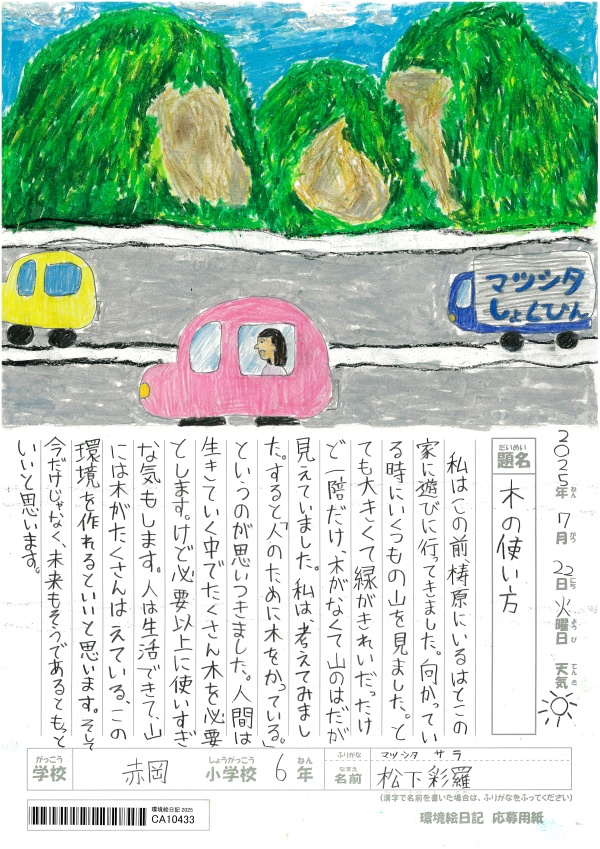 マツシタ
しょくひん
2025年 7月 22日 火曜日 天気
ねん がつ にち ようび てんき
だいめい
題名
木の使い方
私はこの前梼原にいるはとこの
家に遊びに行ってきました。向かってい
る時にいくつもの山を見ました。と
ても大きくて緑がきれいだったけ
ど一陪だけ、木がなくて山のはだが
見えていました。私は、考えてみまし
た。すると「人のために木をかっている。」
というのが思いつきました。人間は
生きていく中でたくさん木を必要
とします。けど必要以上に使いすぎ
な気もします。人は生活できて、山
には木がたくさんはえている、この
環境を作れるといいと思います。そして
今だけじゃなく、未来もそうであるともっと
いいと思います。
がっこう
学校
赤岡
しょうがっこう
小学校
6
ねん
年
ふりがな
マツシタ サラ
なまえ
名前
松下彩羅
(漢字で名前を書いた場合は、ふりがなをふってください)
環境絵日記 2025
CA10433
環境絵日記 応募用紙